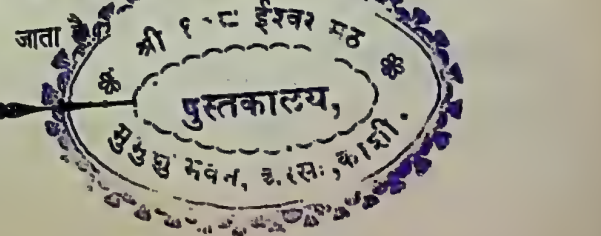 जाता है।
श्री १०८ ईश्वर मठ
पुस्तकालय,
मुमुक्षु भवन, काशी.